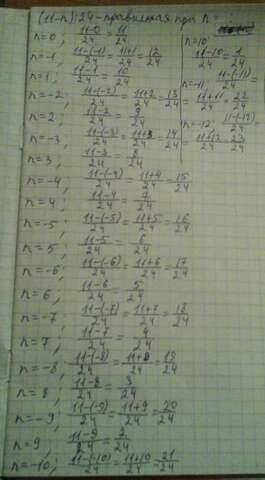 (11-n):24 - правильная при n =
n=0; 11-0/24 = 11/24
n=-1; 11-(-1)/24 = 11+1/24 = 12/24
n=1; 11-1/24 = 10/24
n=-2; 11-(-2)/24 = 11+2/24 = 13/24
n=2; 11-2/24 = 9/24
n=-3; 11-(-3)/24 = 11+3/24 = 14/24
n=3; 11-3/24 = 8/24
n=-4; 11-(-4)/24 = 11+4/24 = 15/24
n=4; 11-4/24 = 7/24
n=-5; 11-(-5)/24 = 11+5/24 = 16/24
n=5; 11-5/24 = 6/24
n=-6; 11-(-6)/24 = 11+6/24 = 17/24
n=6; 11-6/24 = 5/24
n=-7; 11-(-8)/24 = 11+7/24 = 18/24
n=7; 11-7/24 = 4/24
n=-8; 11-(-8)/24 = 11+8/24 = 19/24
n=8; 11-8/24 = 3/24
n=-9; 11-(-9)/24 = 11+9/24 = 20/24
n=9; 11-9/24 = 2/24
n=-10; 11-(-10)/24 = 11+10/24 = 21/24
n=10'
11-10/24 = 1/24
n=-11; 11-(-11)/24 =
= 11+11/24 = 22/24
n=-12' 11-(-12)/24 =
= 11+12/24 = 23/24